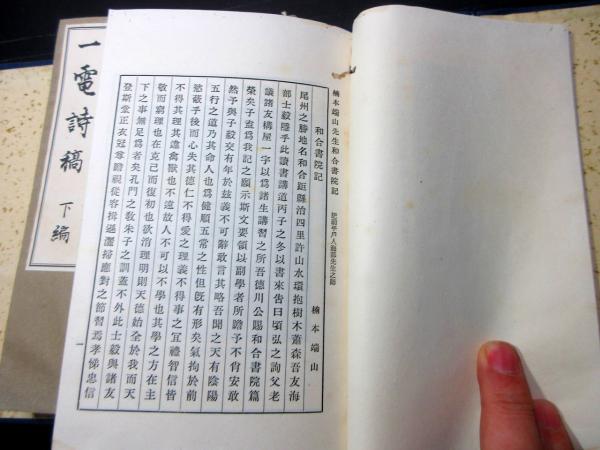 一電詩稿 下編
楠本端山先生和合書院記
和合書院記
楠本端山
尾州之勝地名和合距縣治四里許山水環抱樹木蕭森吾友海
部士毅隱乎此讀書講道丙子之冬以書來告曰頃弘之詢父老
議諸友構屋一宇以爲諸生講習之所吾德川公賜和合書院篇
榮矣子盍爲我記之願示斯文要領以副學者所瞻予不肖安敢
然予與子毅交有年於茲義不可辭敢言其略吾聞之天有陰陽
五行之道乃其命人也爲健順五常之性但旣有形矣氣拘於前
慾蔽乎後而心失其德仁不得愛之理義不得事之宜禮智信皆
不得其理其違禽獸也不遠故人不可以不學也其學之方在主
敬而窮理也在克己而復初也欲消理明則天德始全於我而天
下之事無足爲者矣孔門之敎朱子之訓蓋不外此士毅與諸友
登斯堂正衣冠尊瞻視從容揖遜灑掃應對之節習焉孝悌忠信
一